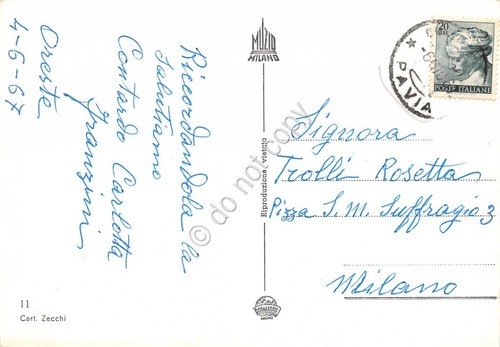 Riccordandola la
Salutiamo
Contardo Carlotta
Franzini
Oreste
4-6-67
11
Cart. Zecchi
MUZIO
MILANO
Riproduzione vietata
do not copy
PAVIA
20
LIRE
POSTE ITALIANE
Signora
Trolli Rosetta
Pizza S. M. Suffragio 3
Milano